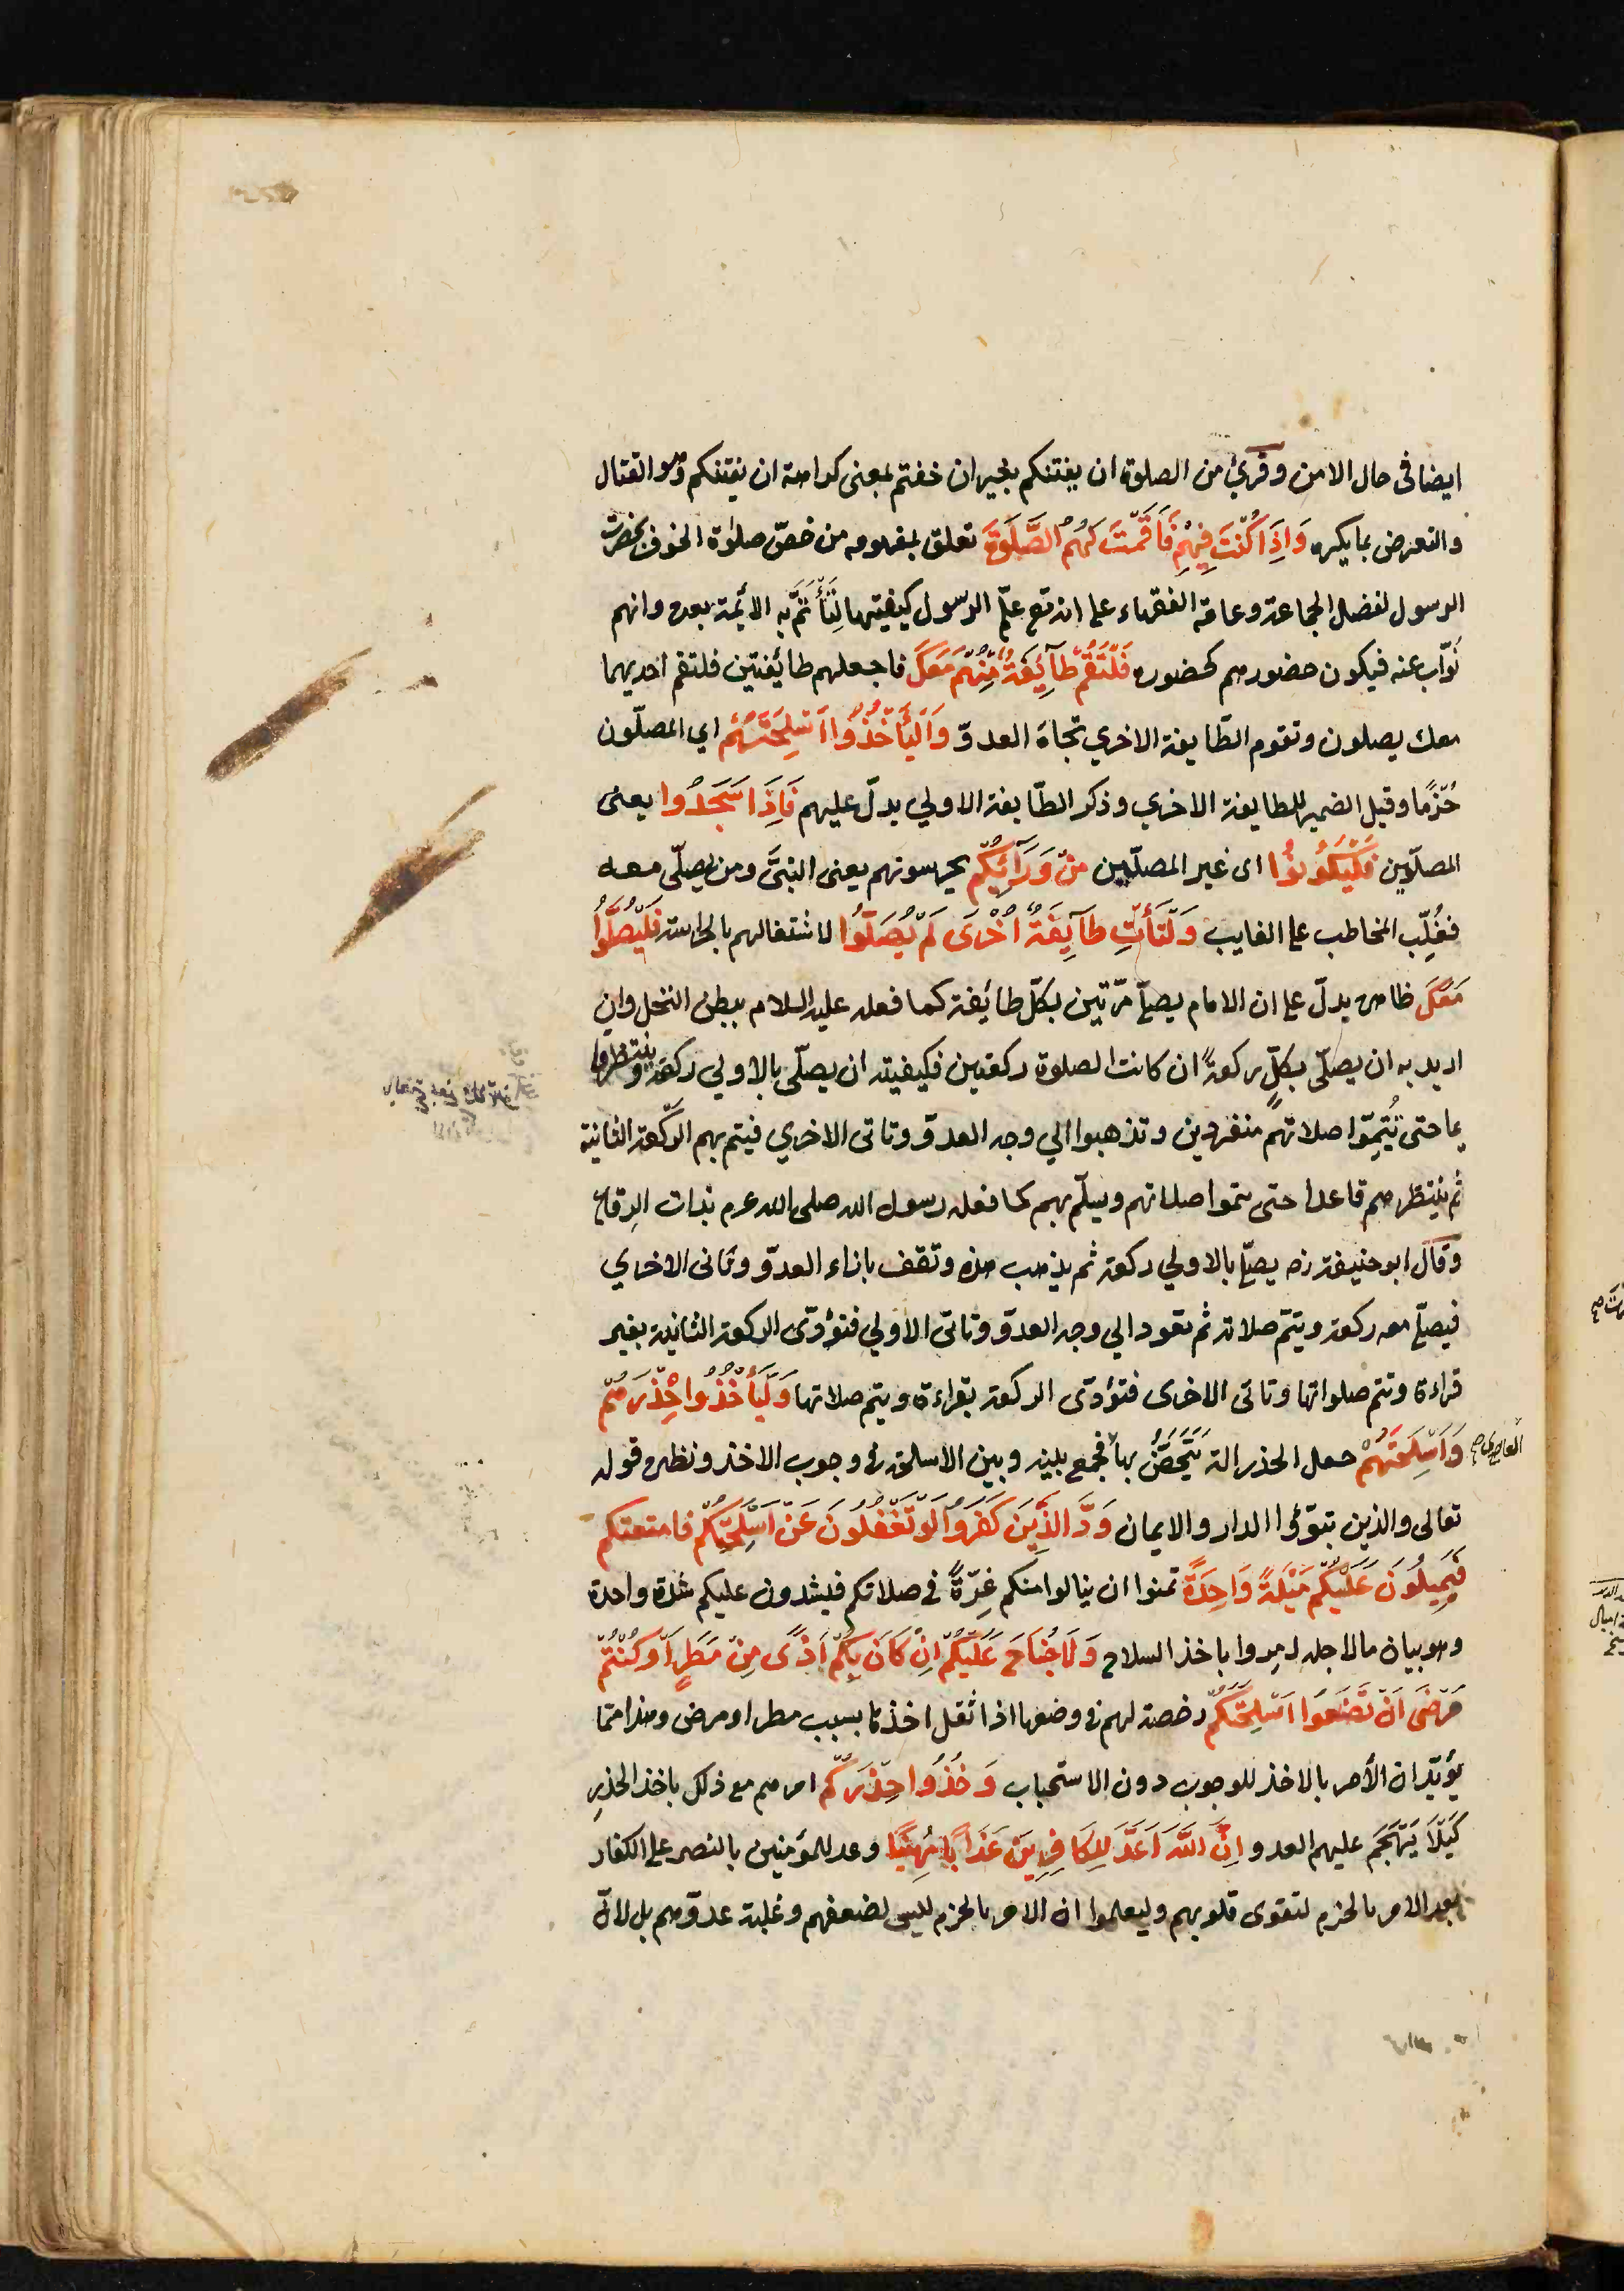 ايضا فى حال الامن وقرئ من الصلوة ان يفتنكم بغير ان خفتم بمعنى كراهة ان يفتنكم وهو القتال
والتعرض بما يكره وَاِذَا كُنْتَ فِيهِمْ فَاَقَمْتَ لَهُمُ الصَّلٰوةَ تعلق بمفهومه من خصّ صلوة الخوف بحضرة
الرسول لفضل الجماعة وعامة الفقهاء على انه تع علّم الرسول كيفيتها لِتَأْتَمَّ به الائمة بعده وانهم
نُوّاب عنه فيكون حضورهم كحضوره فَلْتَقُمْ طَآئِفَةٌ مِنْهُمْ مَعَكَ فاجعلهم طائفتين فلتقم احديهما
معك يصلون وتقوم الطّايفة الاخري تجاهَ العدوّ وَلْيَأْخُذُوا اَسْلِحَتَهُمْ اي المصلّون
حُزمًا وقيل الضمير للطايفة الاخري وذكر الطّايفة الاولي يدلّ عليهم فَاِذَا سَجَدُوا يعنى
المصلّين فَلْيَكُونُوا اى غير المصلّيين مِنْ وَرَآئِكُمْ يحرسونهم يعنى النبىَّ ومن يصلّى معه
فغُلِّب المخاطب على الغايب وَلْتَأْتِ طَآئِفَةٌ اُخْرَى لَمْ يُصَلُّوا لاشتغالهم بالحراسة فَلْيُصَلُّوا
مَعَكَ ظاهره يدلّ على ان الامام يصلّي مرّتين بكلّ طائفة كما فعله عليه السلام ببطن النخل وان
اريد به ان يصلّى بكلٍّ ركعةً ان كانت الصلوة ركعتين فكيفيته ان يصلّى بالاولي ركعة وينتظر قا
يما حتى يُتِمّوا صلاتهم منفردين وتذهبوا الي وجه العدوّ وتاتى الاخري فيتم بهم الركعة الثانية
ثم ينتظرهم قاعدا حتى يتموا صلاتهم ويسلّم بهم كما فعله رسول الله صلى الله عم بذات الرِقاع
وقال ابو حنيفة رَه يصلّي بالاولي ركعة ثم يذهب هذه وتقف بازاء العدوّ وتاتى الاخري
فيصلّي معه ركعة ويتمّ صلاته ثم تعود الي وجه العدوّ وتاتى الاولي فتؤدّى الركعة الثانية بغير
قراءة وتتم صلواتها وتاتى الاخرى فتؤدّى الركعة بقراءة ويتم صلاتها وَلْيَأْخُذُوا حِذْرَهُمْ
وَاَسْلِحَتَهُمْ جعل الحذر الة يَتَحَصَّنُ بها فجمع بينه وبين الاسلحة فى وجوب الاخذ ونظيره قوله
تعالى والذين تبوّؤا الدار والايمان وَدَّ الَّذِينَ كَفَرُوا لَوْ تَغْفُلُونَ عَنْ اَسْلِحَتِكُمْ فامتعتكم
فَيَمِيلُونَ عَلَيْكُمْ مَيْلَةً وَاحِدَةً تمنوا ان ينالوا منكم غِرّةً في صلاتكم فيشدون عليكم شدة واحدة
وهو بيان ما لاجله امروا باخذ السلاح وَلَا جُنَاحَ عَلَيْكُمْ اِنْ كَانَ بِكُمْ اَذًى مِنْ مَطَرٍ اَوْ كُنْتُمْ
مَرْضَى اَنْ تَضَعُوا اَسْلِحَتَكُمْ رخصة لهم فى وضعها اذا ثقل اخذها بسبب مطر او مرض وهذا ممّا
يؤيّد ان الأمر بالاخذ للوجوب دون الاستحباب وَخُذُوا حِذْرَكُمْ امرهم مع ذلك باخذ الحذرِ
كَيْلَا يَتَهَجَّمَ عليهم العدو اِنَّ اللَّهَ اَعَدَّ لِلْكَافِرِينَ عَذَابًا مُهِينًا وعد للمؤمنين بالنصر على الكفار
بعد الامر بالحزم لتقوى قلوبهم وليعلموا ان الامر بالحزم ليس لضعفهم وغلبة عدوّهم بل لانّ